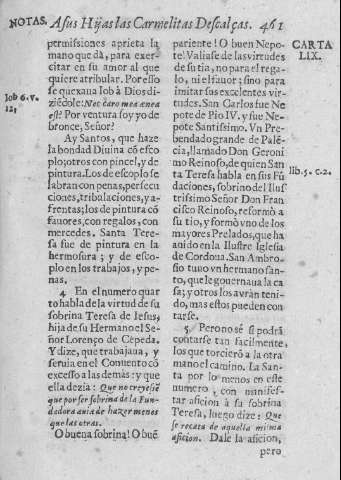 NOTAS. A sus Hijas las Carmelitas Descalças. 461
permissiones aprieta la
mano que dà, para exer-
citar en su amor al que
quiere atribular. Por esso
se quexaua Iob à Dios di-
Iob 6. v.
12.
ziẽdole: Nec caro mea ænea
est? Por ventura soy yo de
bronce, Señor?
Ay Santos, que haze
la bondad Diuina cõ esco-
plo; otros con pincel, y de
pintura. Los de escoplo se
labran con penas, persecu-
ciones, tribulaciones, y a-
frentas; los de pintura cõ
fauores, con regalos, con
mercedes. Santa Tere-
sa fue de pintura en la
hermosura; y de esco-
plo en los trabajos, y pe-
nas.
4 En el numero quar
to habla de la virtud de su
sobrina Teresa de Iesus,
hija de su Hermano el Se-
ñor Lorenço de Cepeda.
Y dize, que trabajaua, y
seruia en el Conuento cõ
excesso a las demàs: y que
ella dezia: Que no creyesse
que por ser sobrina de la Fun-
dadora auia de hazer menos
que las otras.
O buena sobrina! O buẽ
CARTA
LIX.
pariente! O buen Nepo-
te! Valiase de las virtudes
de su tia, no para el rega-
lo, ni el fauor; sino para
imitar sus excelentes vir-
tudes. San Carlos fue Ne
pote de Pio IV. y fue Ne-
pote Santissimo. Vn Pre-
bendado grande de Palẽ-
cia, llamado Don Geroni
mo Reinoso, de quien San
lib. 5. c. 2.
ta Teresa habla en sus Fũ
daciones, sobrino del Ilus
trissimo Señor Don Fran-
cisco Reinoso, reformò a
su tio, y formò vno de los
mayores Prelados, que ha
auido en la Ilustre Iglesia
de Cordoua. San Ambro-
sio tuuo vn hermano san-
to, que le gouernaua la ca
sa; y otros los avràn teni-
do, mas estos pueden con
tarse.
5 Pero no sè si podrà
contarse tan facilmente,
los que torcieró a la otra
mano el camino. La San-
ta por lo menos en este
numero, con manifes-
tar aficion à su sobrina
Teresa, luego dize: Que
se recata de aquella misma
aficion. Dale la aficion,
pero